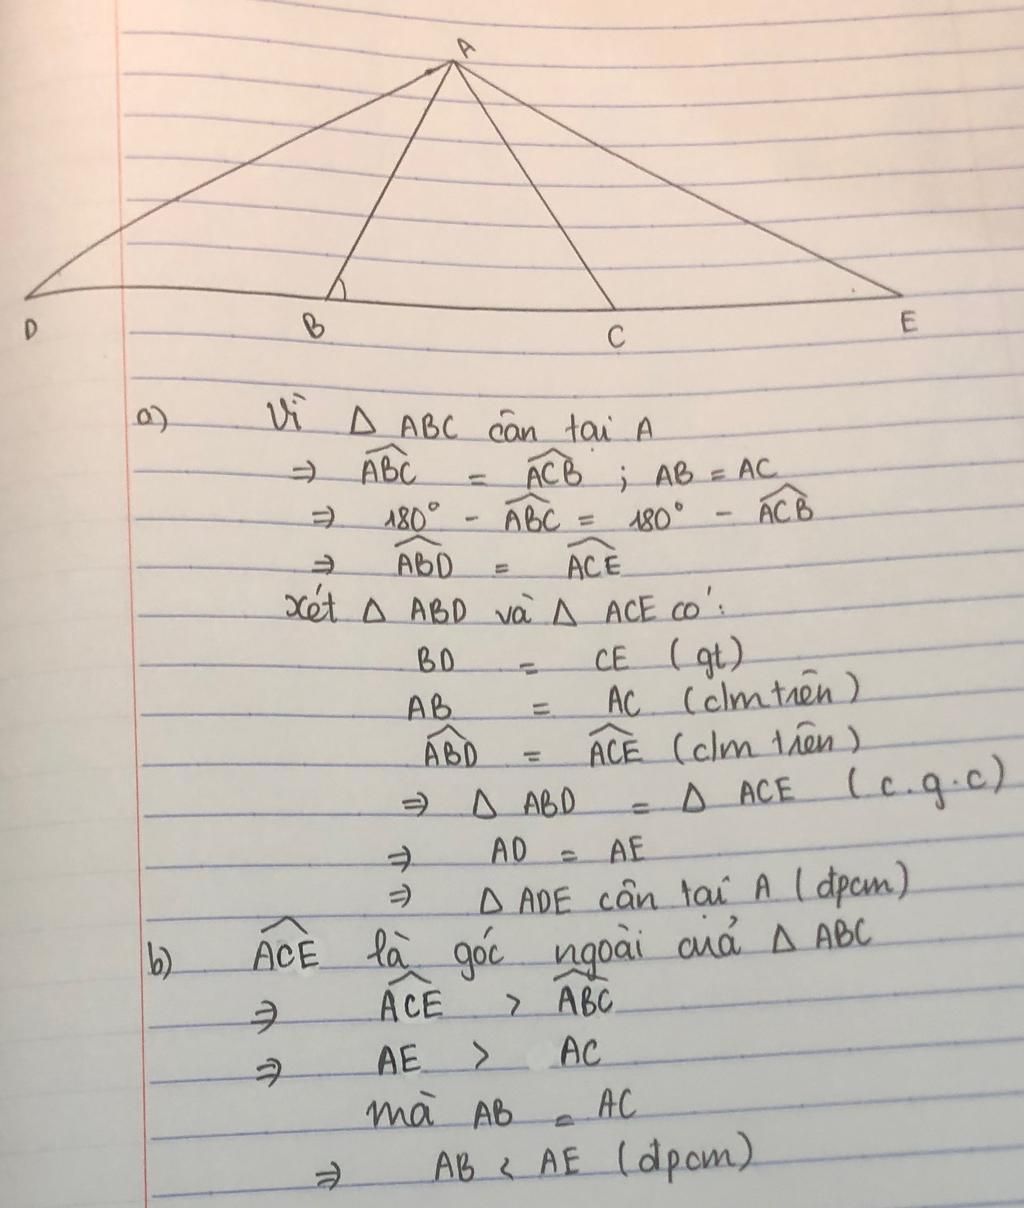 A
D
B
C
E
a) Vì Δ ABC cân tại A
⇒ $\widehat{ABC}$ = $\widehat{ACB}$ ; AB = AC
⇒ 180° - $\widehat{ABC}$ = 180° - $\widehat{ACB}$
⇒ $\widehat{ABD}$ = $\widehat{ACE}$
xét Δ ABD và Δ ACE có:
BD = CE (gt)
AB = AC (clm trên)
$\widehat{ABD}$ = $\widehat{ACE}$ (clm trên)
⇒ Δ ABD = Δ ACE (c.g.c)
⇒ AD = AE
⇒ Δ ADE cân tại A (đpcm)
b) $\widehat{ACE}$ là góc ngoài cuả Δ ABC
⇒ $\widehat{ACE}$ > $\widehat{ABC}$
⇒ AE > AC
mà AB = AC
⇒ AB < AE (đpcm)